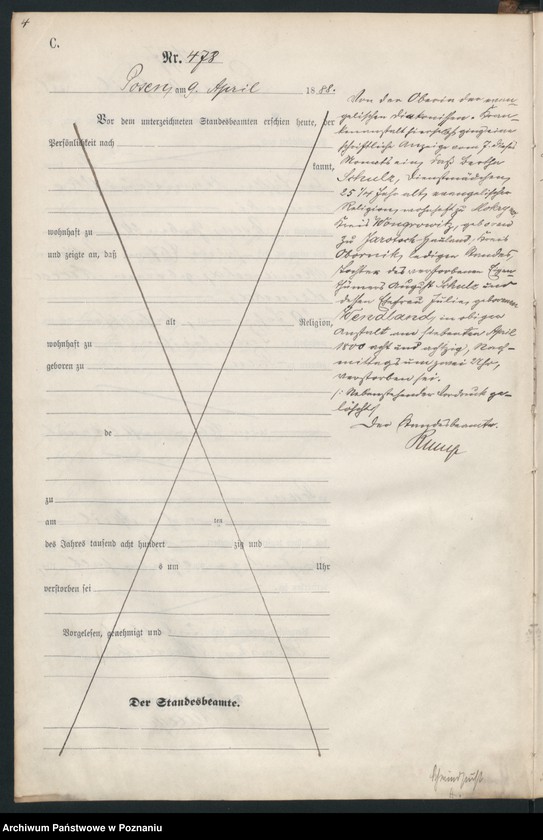 4
C.
Nr. 478
Posen, am 9. April 1888.
Vor dem unterzeichneten Standesbeamten erschien heute, der
Persönlichkeit nach
kannt,
wohnhaft zu
und zeigte an, daß
alt Religion,
wohnhaft zu
geboren zu
de
zu
am ten
des Jahres tausend acht hundert zig und
s um Uhr
verstorben sei
Vorgelesen, genehmigt und
Der Standesbeamte.
Von der Oberin der evan-
gelischen Diakonissen-Kran-
kenanstalt hierselbst ging eine
schriftliche Anzeige vom 7. dieses
Monats ein, daß Bertha
Schulz, Dienstmädchen,
25 1/4 Jahr alt, evangelischer
Religion, wohnhaft zu
Kreis Wongrowitz, geboren
zu Jaratsch Hauland, Kreis
Obornik, ledigen Standes,
Tochter des verstorbenen Eigen-
thümers August Schulz und
dessen Ehefrau Julie, geborenen
Wendland, in obiger
Anstalt am siebenten April
1800 acht und achtzig, Nach-
mittags um zwei Uhr,
verstorben sei.
/: Nebenstehender Vordruck ge-
löscht/
Der Standesbeamte.
Archiwum Państwowe w Poznaniu